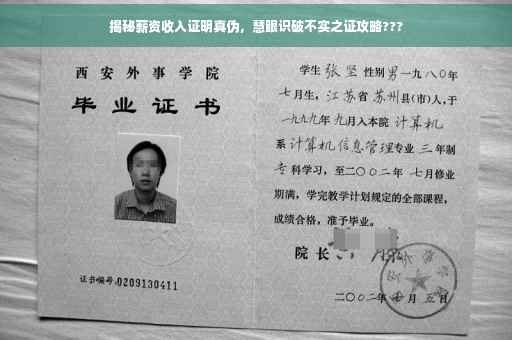 揭秘薪资收入证明真伪，慧眼识破不实之证攻略???
西安外事学院
毕业证书
证书编号:0209130411
学生张坚性别男一九八〇年
七月生，江苏省苏州县(市)人,于
一九九九年九月入本院计算机
系计算机信息管理专业三年制
专科学习，至二〇〇二年七月修业
期满，学完教学计划规定的全部课程，
成绩合格，准予毕业。
院长
二〇〇二年七月五日